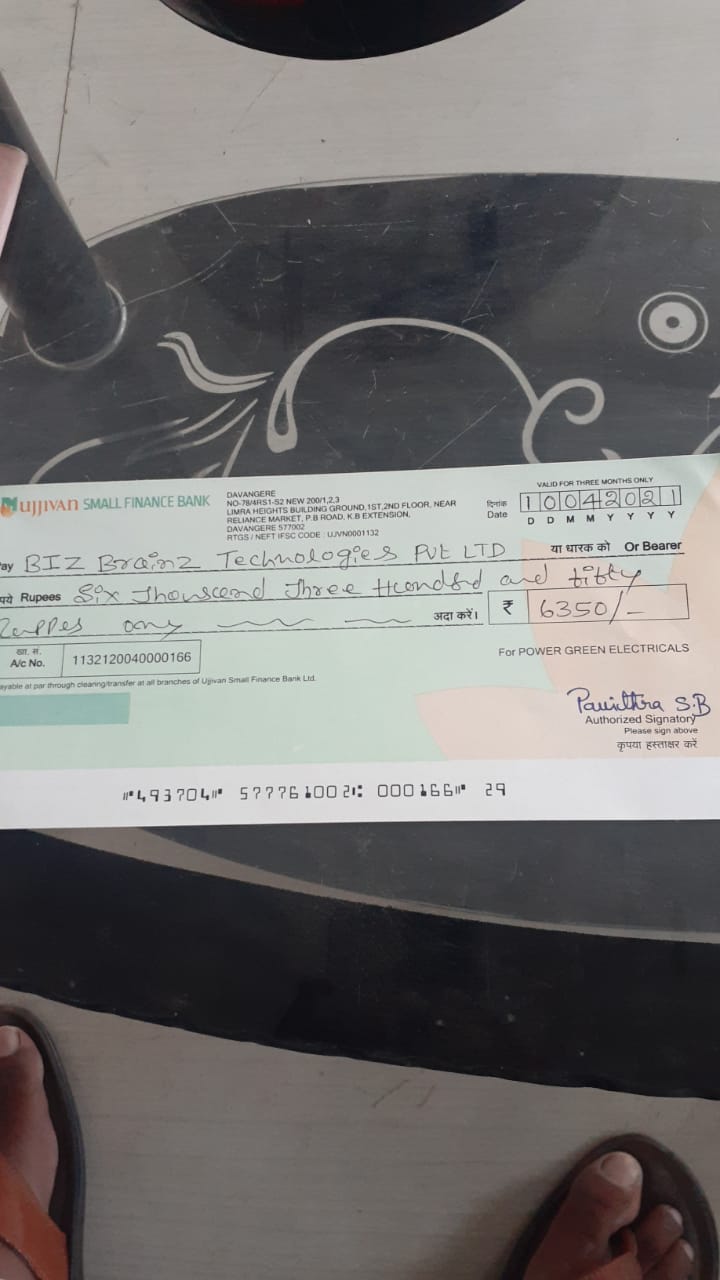 ujjivan SMALL FINANCE BANK
DAVANGERE
NO-78/4RS1-S2 NEW 200/1,2,3
LIMRA HEIGHTS BUILDING GROUND,1ST,2ND FLOOR, NEAR
RELIANCE MARKET, P.B ROAD, K.B EXTENSION,
DAVANGERE 577002
RTGS / NEFT IFSC CODE : UJVN0001132
VALID FOR THREE MONTHS ONLY
दिनांक
Date 10042021
D D M M Y Y Y Y
ay BIZ Brainz Technologies Pvt LTD या धारक को Or Bearer
पये Rupees Six Thousand Three Hundred and fifty
अदा करें। ₹ 6350/-
खा. सं.
A/c No. 1132120040000166
For POWER GREEN ELECTRICALS
ayable at par through clearing/transfer at all branches of Ujjivan Small Finance Bank Ltd.
Pavithra S.B
Authorized Signatory
Please sign above
कृपया हस्ताक्षर करें
⑈493704⑈ 577761002⑆ 000166⑈ 29